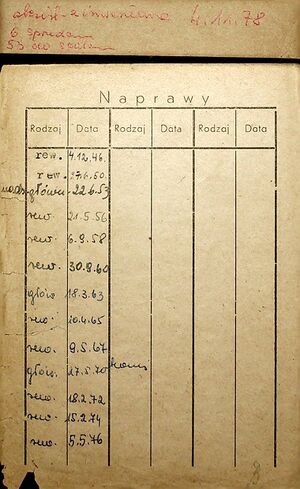 4.11.78
6 sprzedam
53 do
Naprawy
Rodzaj Data Rodzaj Data Rodzaj Data
rew. 4.12.46.
rew. 27.6.50.
główn. 22.6.53
rew. 21.5.56
rew. 6.9.58
rew. 30.9.60
główn. 18.3.63
rew. 10.4.65
rew. 9.5.67
główn. 17.5.70
rew. 18.2.72
rew. 15.2.74
rew. 5.5.76